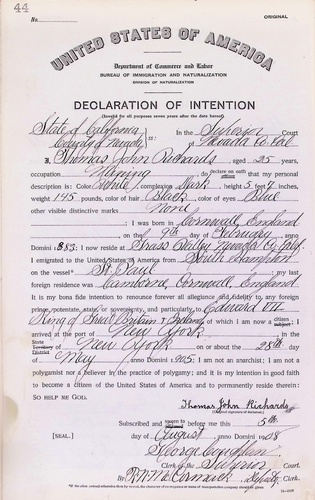 44
ORIGINAL
No.
UNITED STATES OF AMERICA
Department of Commerce and Labor
BUREAU OF IMMIGRATION AND NATURALIZATION
DIVISION OF NATURALIZATION
DECLARATION OF INTENTION
(Invalid for all purposes seven years after the date hereof)
State of California
County of Nevada ss: In the Superior Court
of Nevada Co. Cal
I, Thomas John Richards, aged 25 years,
occupation Mining, do declare on oath affirm that my personal
description is: Color White, complexion Dark, height 5 feet 7 inches,
weight 145 pounds, color of hair Black, color of eyes Blue
other visible distinctive marks None
I was born in Cornwall, England
on the 9th day of February, anno
Domini 1883; I now reside at Grass Valley Nevada Co. Cal.
I emigrated to the United States of America from South Hampton
on the vessel St. Paul; my last
foreign residence was Camborne, Cornwall, England
It is my bona fide intention to renounce forever all allegiance and fidelity to any foreign
prince, potentate, state, or sovereignty, and particularly to Edward VII
King of Great Britain & Ireland, of which I am now a citizen subject; I
arrived at the port of New York, in the
State Territory District of New York on or about the 28th day
of May, anno Domini 1905; I am not an anarchist; I am not a
polygamist nor a believer in the practice of polygamy; and it is my intention in good faith
to become a citizen of the United States of America and to permanently reside therein:
SO HELP ME GOD.
Thomas John Richards
(Original signature of declarant)
Subscribed and sworn to affirmed before me this 5th
[SEAL.] day of August, anno Domini 1908
George
Clerk of the Superior Court.
By R. N. McCormack, Deputy Clerk.